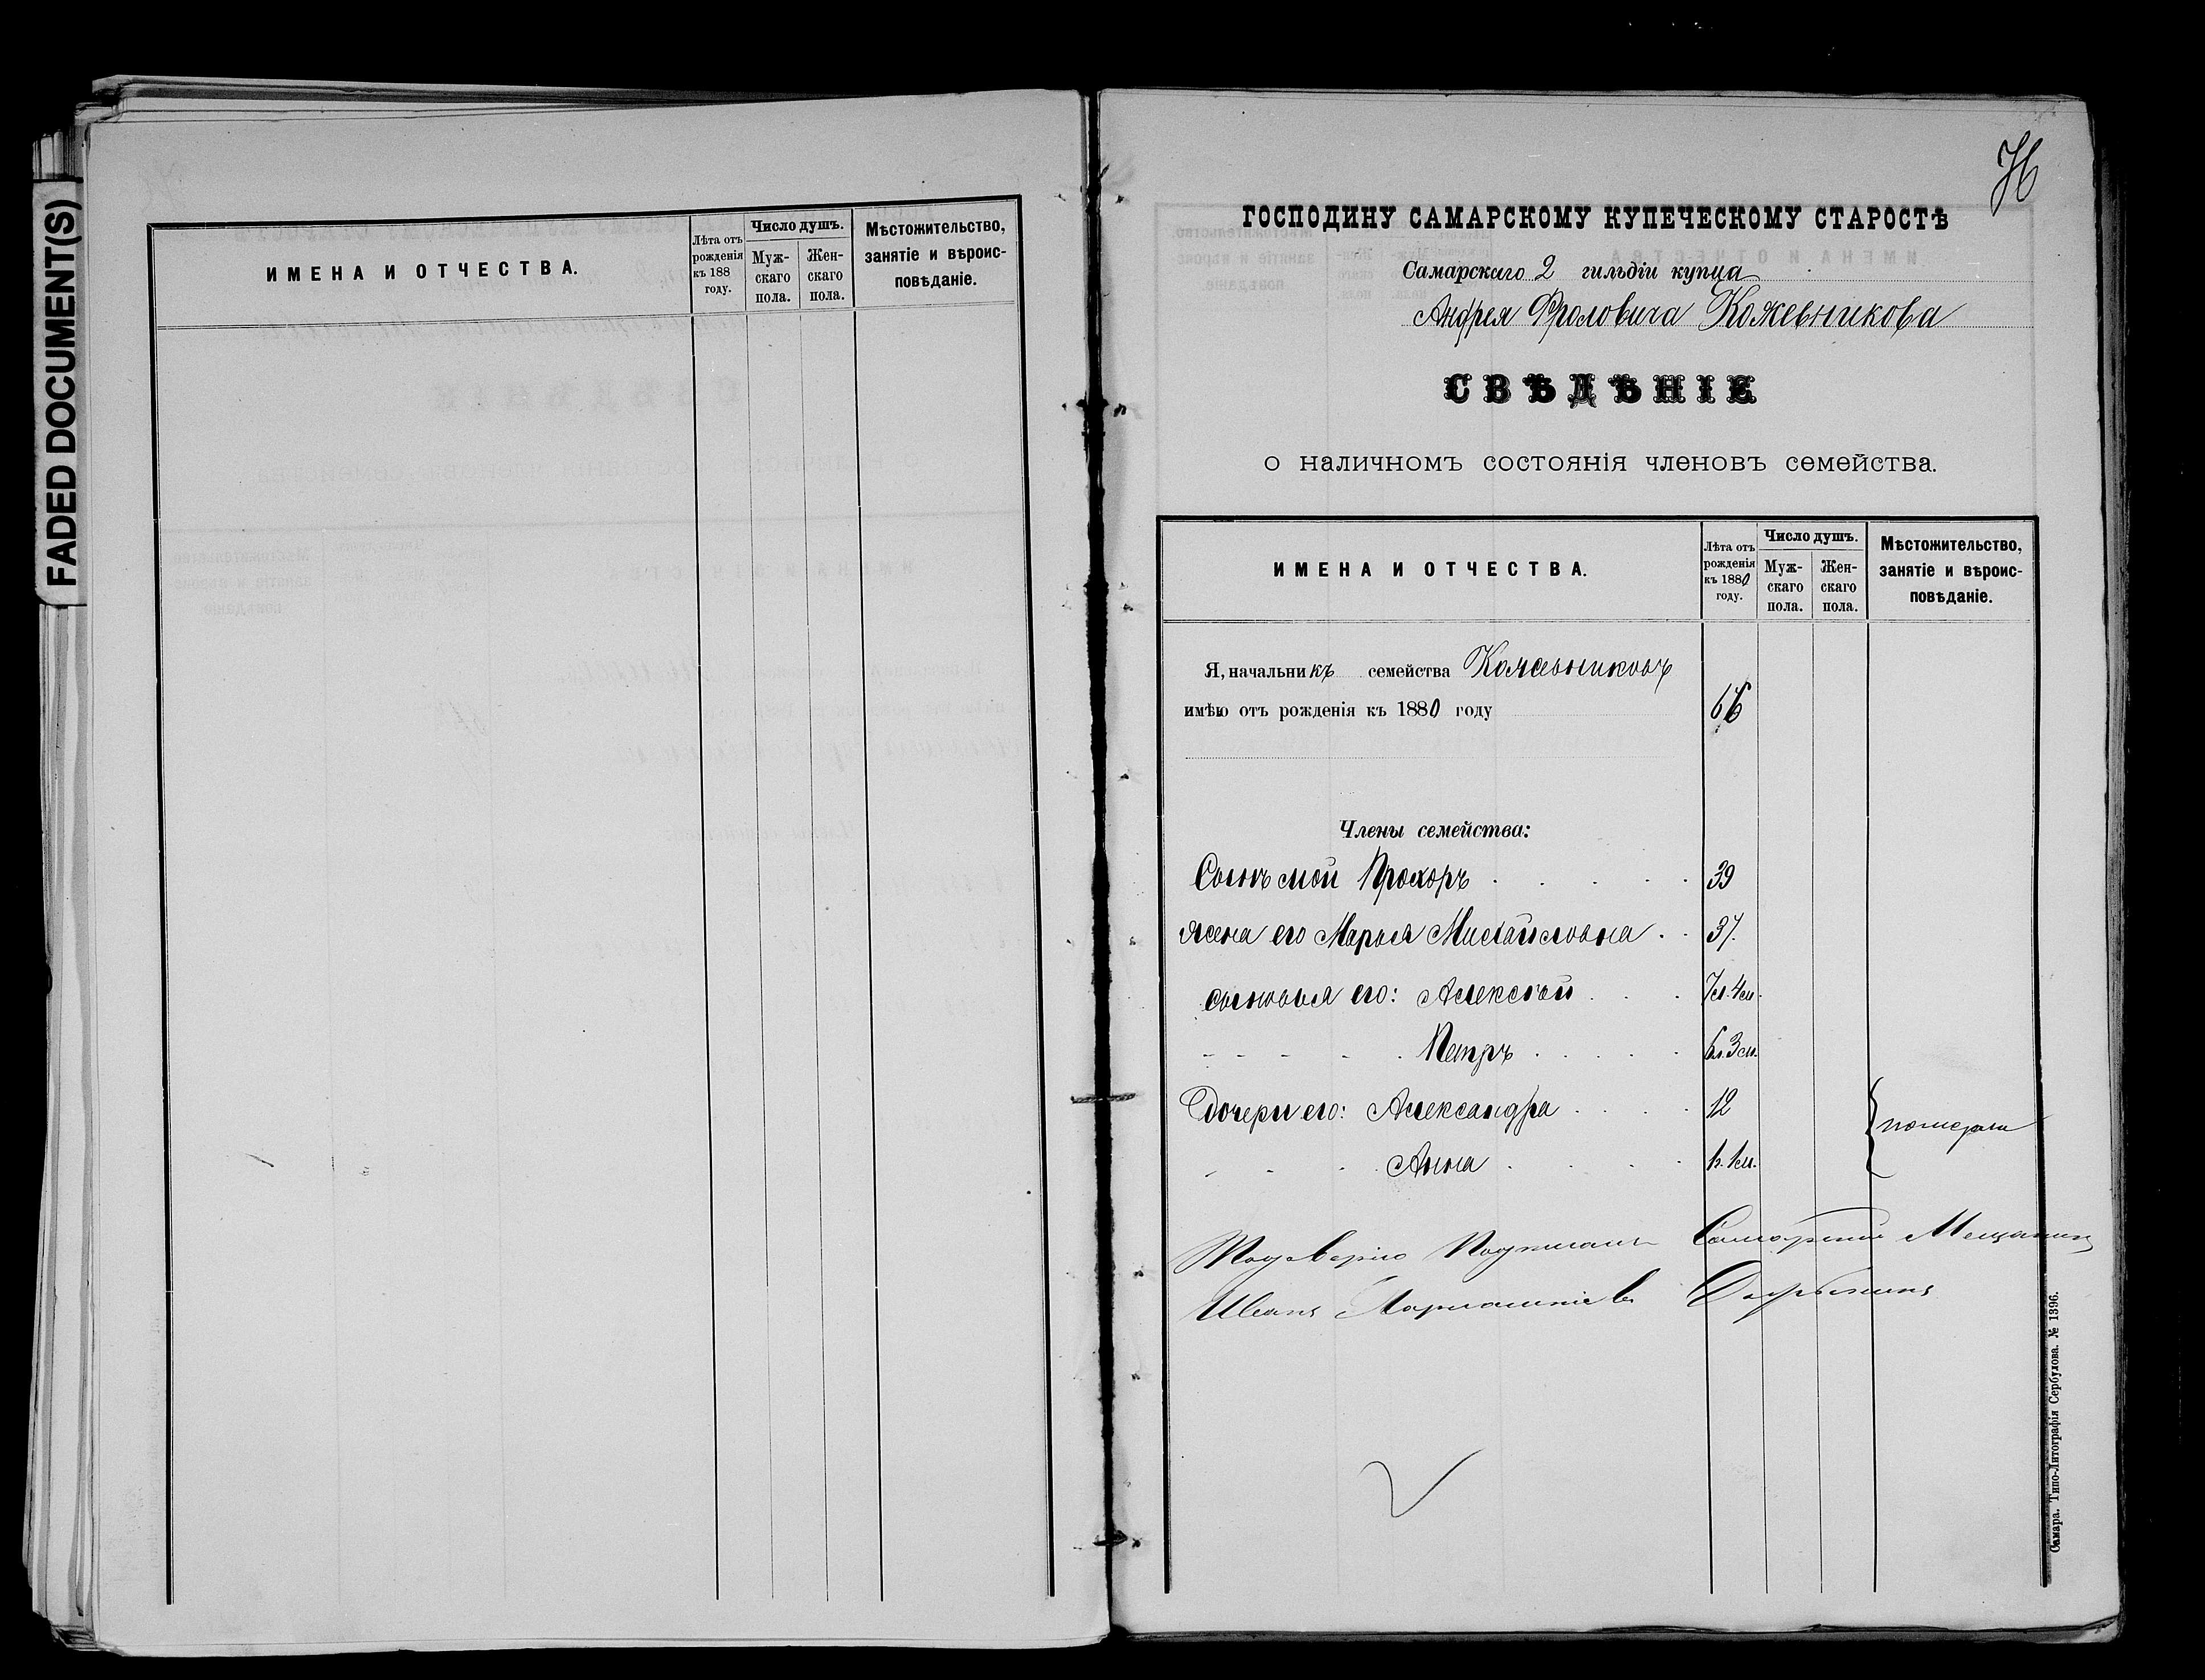 FADED DOCUMENT(S)
ИМЕНА И ОТЧЕСТВА.
Лѣта отъ рожденія къ 188 году.
Число душъ.
Мужскаго пола.
Женскаго пола.
Мѣстожительство, занятіе и вѣроисповѣданіе.
ГОСПОДИНУ САМАРСКОМУ КУПЕЧЕСКОМУ СТАРОСТѢ
Самарскаго 2 гильдіи купца
Андрея Фроловича Кожевникова
СВѢДѢНІЕ
о наличномъ состоянія членовъ семейства.
ИМЕНА И ОТЧЕСТВА.
Лѣта отъ рожденія къ 1880 году.
Число душъ.
Мужскаго пола.
Женскаго пола.
Мѣстожительство, занятіе и вѣроисповѣданіе.
Я, начальникъ семейства Кожевниковъ
имѣю отъ рожденія къ 1880 году 66
Члены семейства:
Сынъ мой Прохоръ 39
жена его Марья Михайловна 37.
сыновья его: Алексѣй 7л. 4м.
Петръ 6л. 3м.
Дочери его: Александра 12
Анна 1г. 1м.
померли
Самарский Мещанинъ
Иванъ
Самара. Типо-Литографія Сербулова. № 1396.